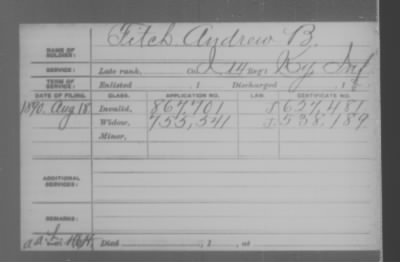 NAME OF SOLDIER: Fitch, Andrew B.
SERVICE: Late rank, Co. I 14 Reg't Ky. Inf
TERM OF SERVICE: Enlisted , 1 Discharged , 1
DATE OF FILING. CLASS. APPLICATION NO. LAW. CERTIFICATE NO.
1890. Aug 18 Invalid, 867,701 J 627,481
Widow, 753,341 J. 538,189
Minor,
ADDITIONAL SERVICES:
REMARKS:
Died , 1 , at